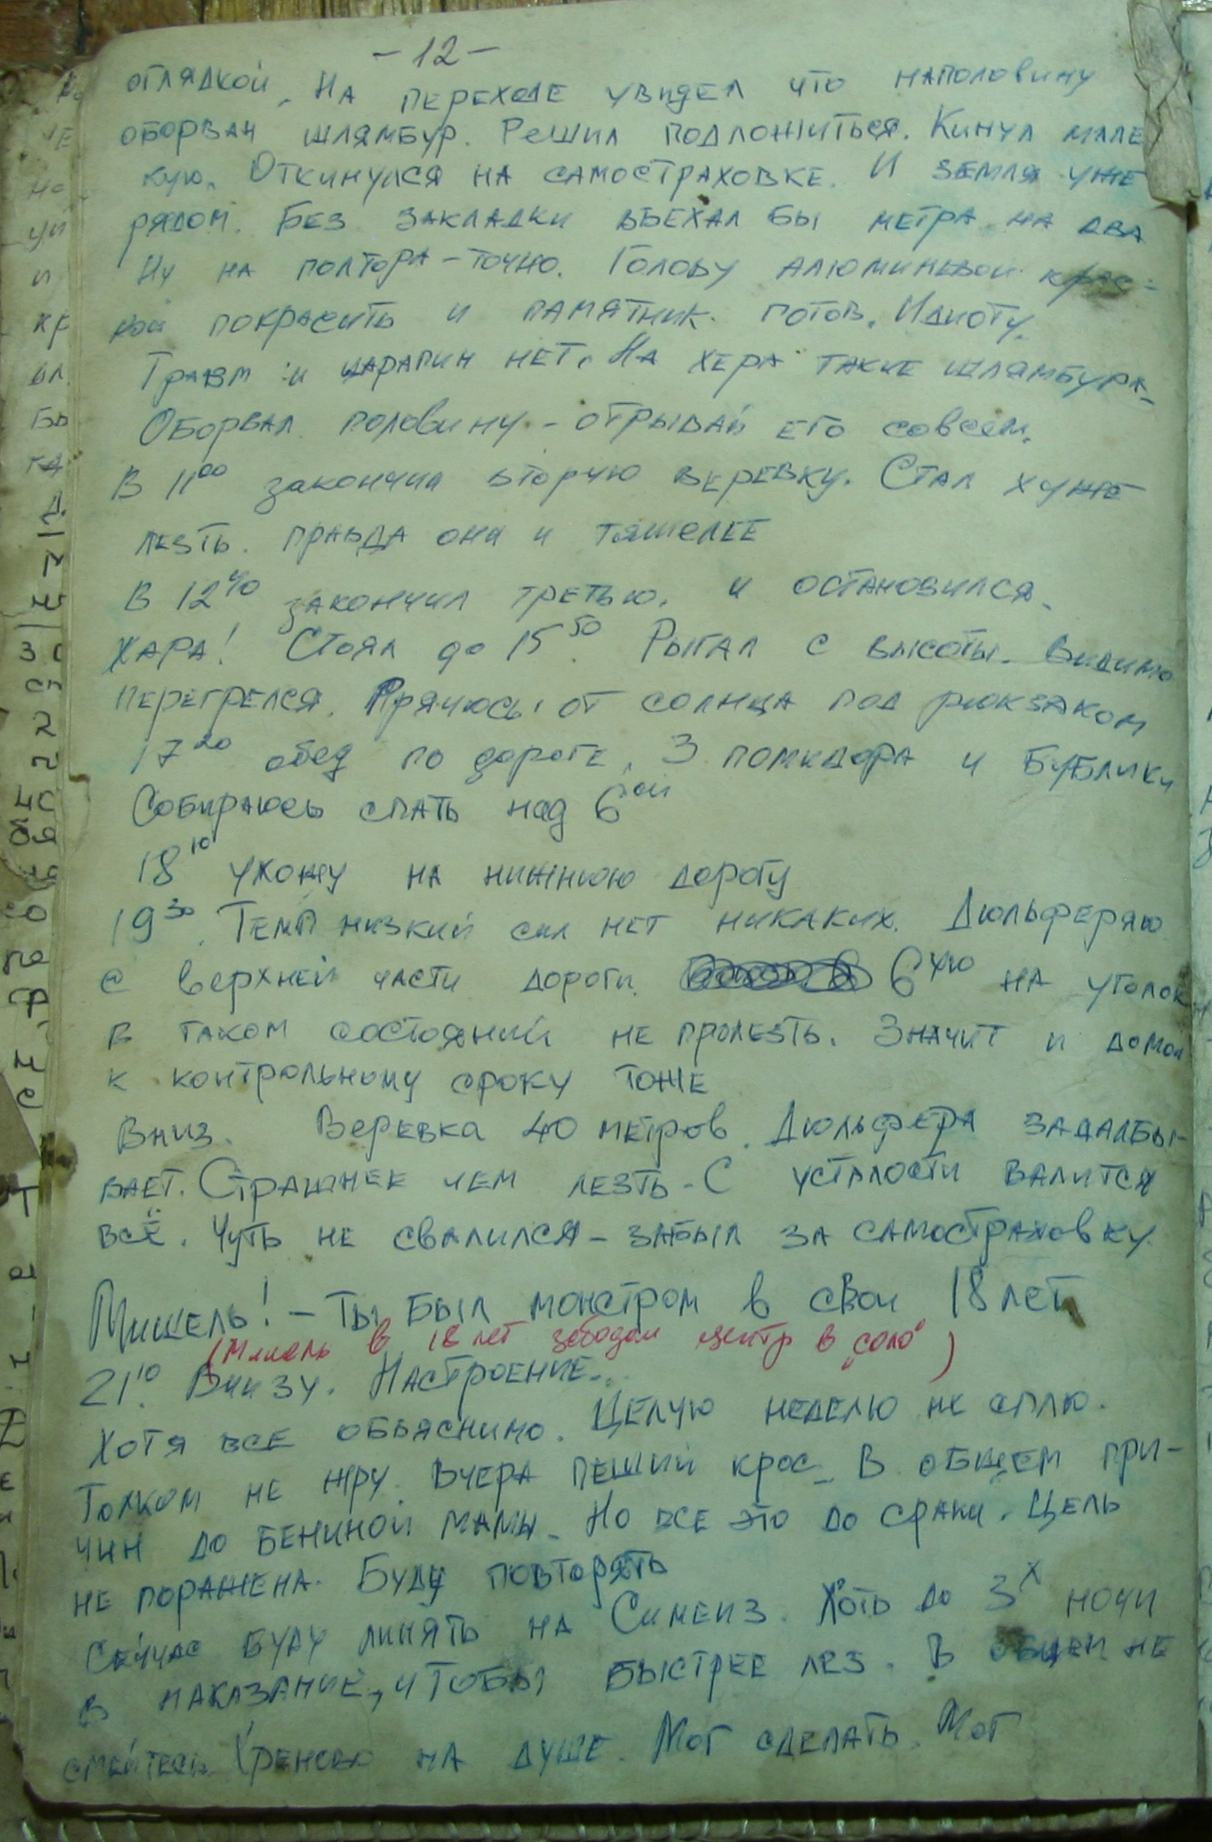 - 12 -
оглядкой. На переходе увидел что наполовину
оборван шлямбур. Решил подложиться. Кинул мале
кую. Откинулся на самостраховке. И земля уже
рядом. Без закладки въехал бы метра на два
Ну на полтора - точно. Голову алюминевой крас-
кой покрасить и памятник готов. Идиоту.
Травм и царапин нет. На хера такие шлямбура
Оборвал половину - отрывай его совсем.
В 11 00 закончил вторую веревку. Стал хуже
лезть. правда она и тяжелее
В 12 40 закончил третью. и остановился.
Жара! Стоял до 15 50. Рыгал с высоты. Видимо
перегрелся. Прячюсь от солнца под рюкзаком
17 20 обед по дороге. 3 помидора и бублики
Собираюсь спать над 6 ой
18 10 ухожу на нижнюю дорогу
19 30. Темп низкий сил нет никаких. Дюльферяю
с верхней части дороги. 6 ую на уголок
в таком состояний не пролезть. Значит и домой
к контрольному сроку тоже
Вниз. Веревка 40 метров. Дюльфера задалбы-
вает. Страшнее чем лезть. С усталости валится
всё. Чуть не свалился - забыл за самостраховку.
Мишель! - Ты был монстром в свои 18 лет
(Мишель в 18 лет центр в "соло")
21 10. Внизу. Настроение..
Хотя все объяснимо. Целую неделю не сплю.
Толком не жру. Вчера пеший крос. В общем при-
чин до бениной мамы. Но все это до сраки. Цель
не поражена. Буду повторять
Сейчас буду линять на Симеиз. Хоть до 3 х ночи
в наказание, чтобы быстрее лез. В общем не
смейтесь. Хреново на душе. Мог сделать. Мог